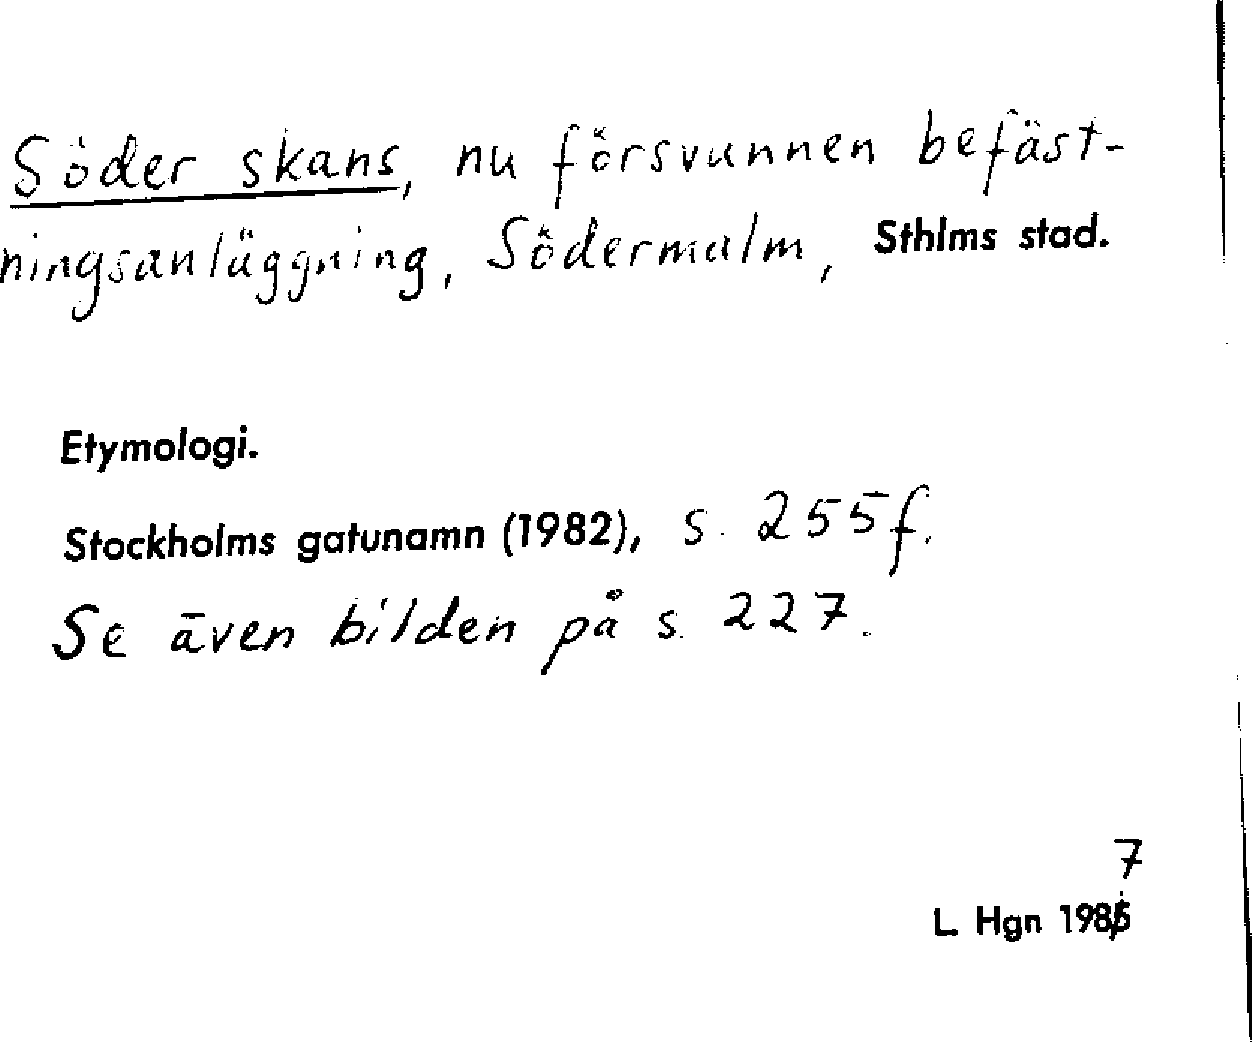 Söder skans, nu försvunnen befäst-
ningsanläggning, Södermalm, Sthlms stad.
Etymologi.
Stockholms gatunamn (1982), s. 255f.
Se även bilden på s. 227.
7
L Hgn 1985